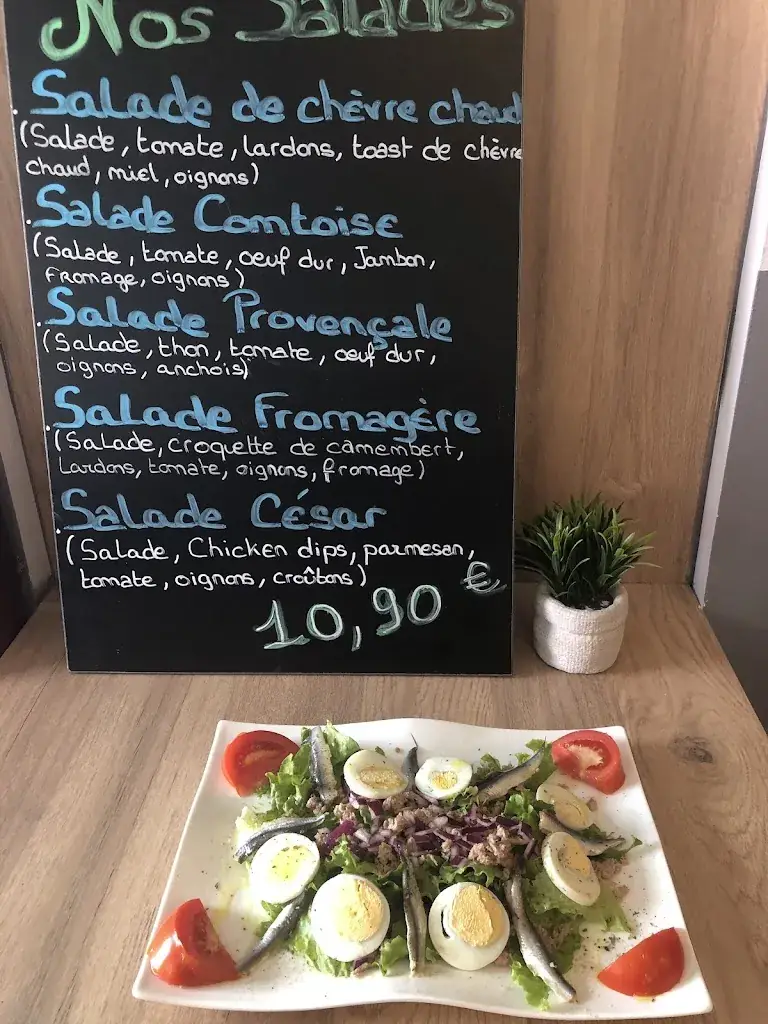 Nos Salades
. Salade de chèvre chaud
(Salade, tomate, lardons, toast de chèvre
chaud, miel, oignons)
. Salade Comtoise
(Salade, tomate, oeuf dur, Jambon,
fromage, oignons)
. Salade Provençale
(Salade, thon, tomate, oeuf dur,
oignons, anchois)
. Salade Fromagère
(Salade, croquette de camembert,
Lardons, tomate, oignons, fromage)
. Salade César
(Salade, Chicken dips, parmesan,
tomate, oignons, croûtons)
10,90 €